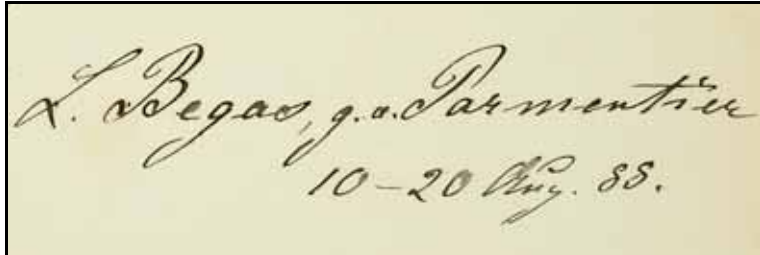 L. Begas, g. v. Parmentier
10-20 Aug. 88.